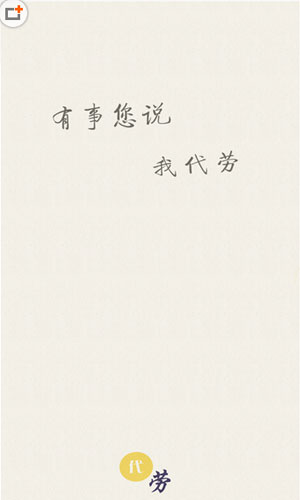 有事您说
我代劳
代
劳